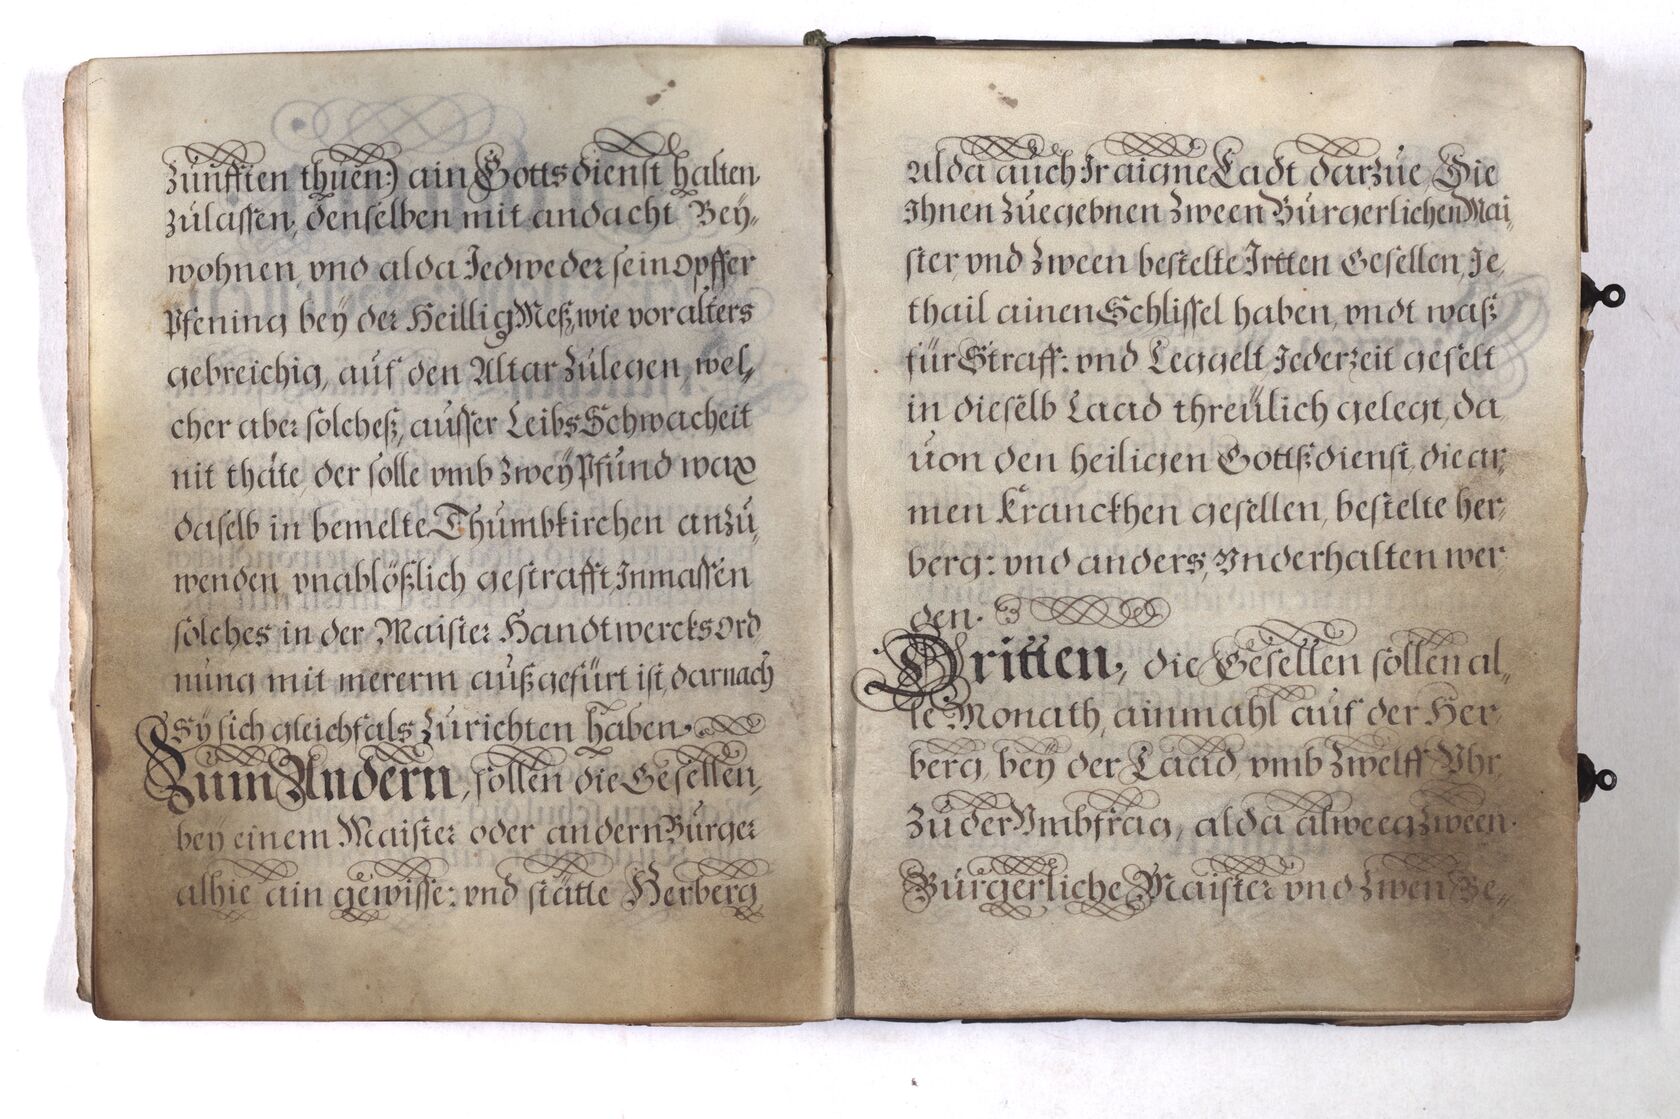 Zünfften thuen:) ain Gottsdienst halten
zúlassen, denselben mit andacht Bey-
wohnen, vnd alda Jedweder sein opffer
Pfening bey der Heillig Meß, wie vor alters
gebreichig, auf den Altar zúlegen, wel-
cher aber solcheß, aússer Leibs Schwacheit
nit thäte, der solle vmb zwey Pfúnd wax
daselb in bemelte Thumbkirchen anzú-
wenden vnablößlich gestrafft, Inmassen
solches in der Maister Handtwercks Ord
núng mit mererm aúßgefürt ist, darnach
sy sich gleichfals zúrichten haben.
Zum Andern, sollen die Gesellen,
bey einem Maister oder andern Búrger
alhie ain gewisse: vnd stätte Herberg
Alda aúch Ir aigne Ladt darzúe, Die
Ihnen zúegebnen zween Búrgerlichen Mai-
ster, vnd zween bestelte Irtten Gesellen, Je-
thail ainen Schlissel haben, vndt waß
für Straff: vnd Leggelt Jederzeit gefelt
in dieselb Laad threúlich gelegt, da
úon den heiligen Gottßdienst, die ar-
men Kranckhen gesellen, bestelte her-
berg: vnd anders, Vnderhalten wer-
den.
Dritten, die Gesellen sollen al-
le Monath, ainmahl auf der Her-
berg, bey der Laad, vmb Zwelff Vhr,
Zú der Vmbfrag, alda alweeg zween
Búrgerliche Maister vnd zwen Be-